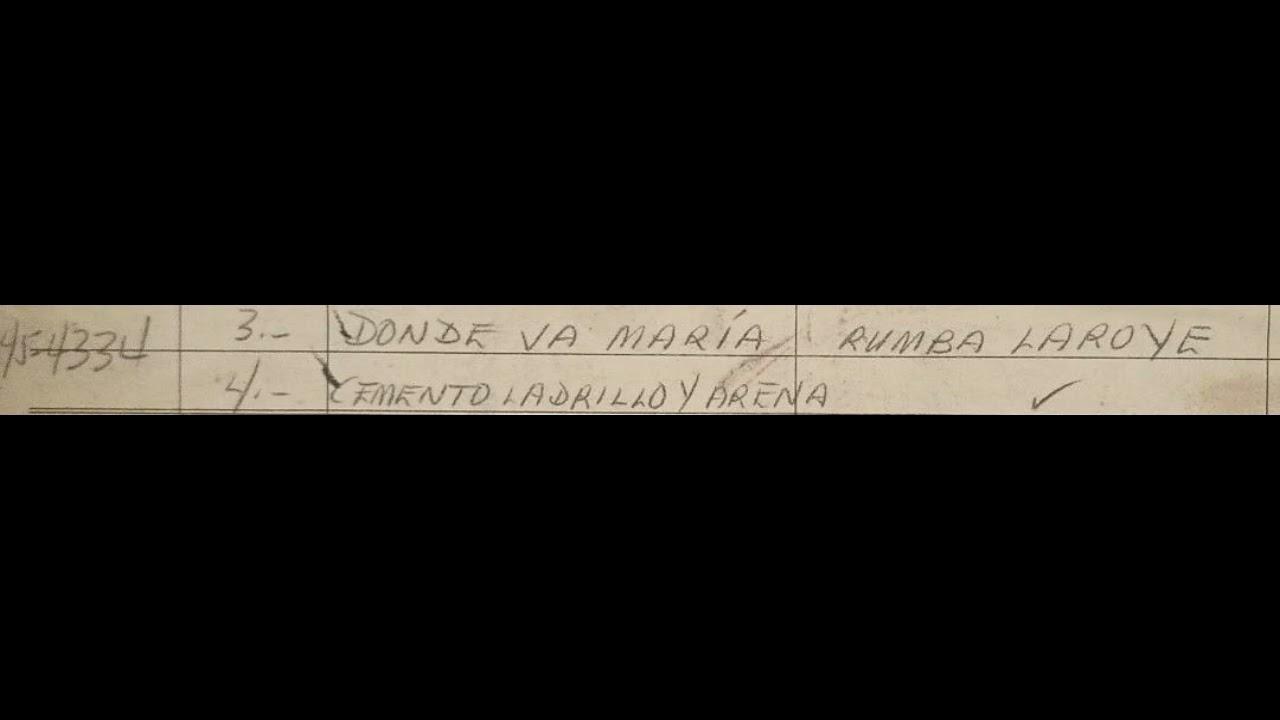 454334 3.- DONDE VA MARÍA RUMBA LAROYE
4.- CEMENTO LADRILLO Y ARENA ✓